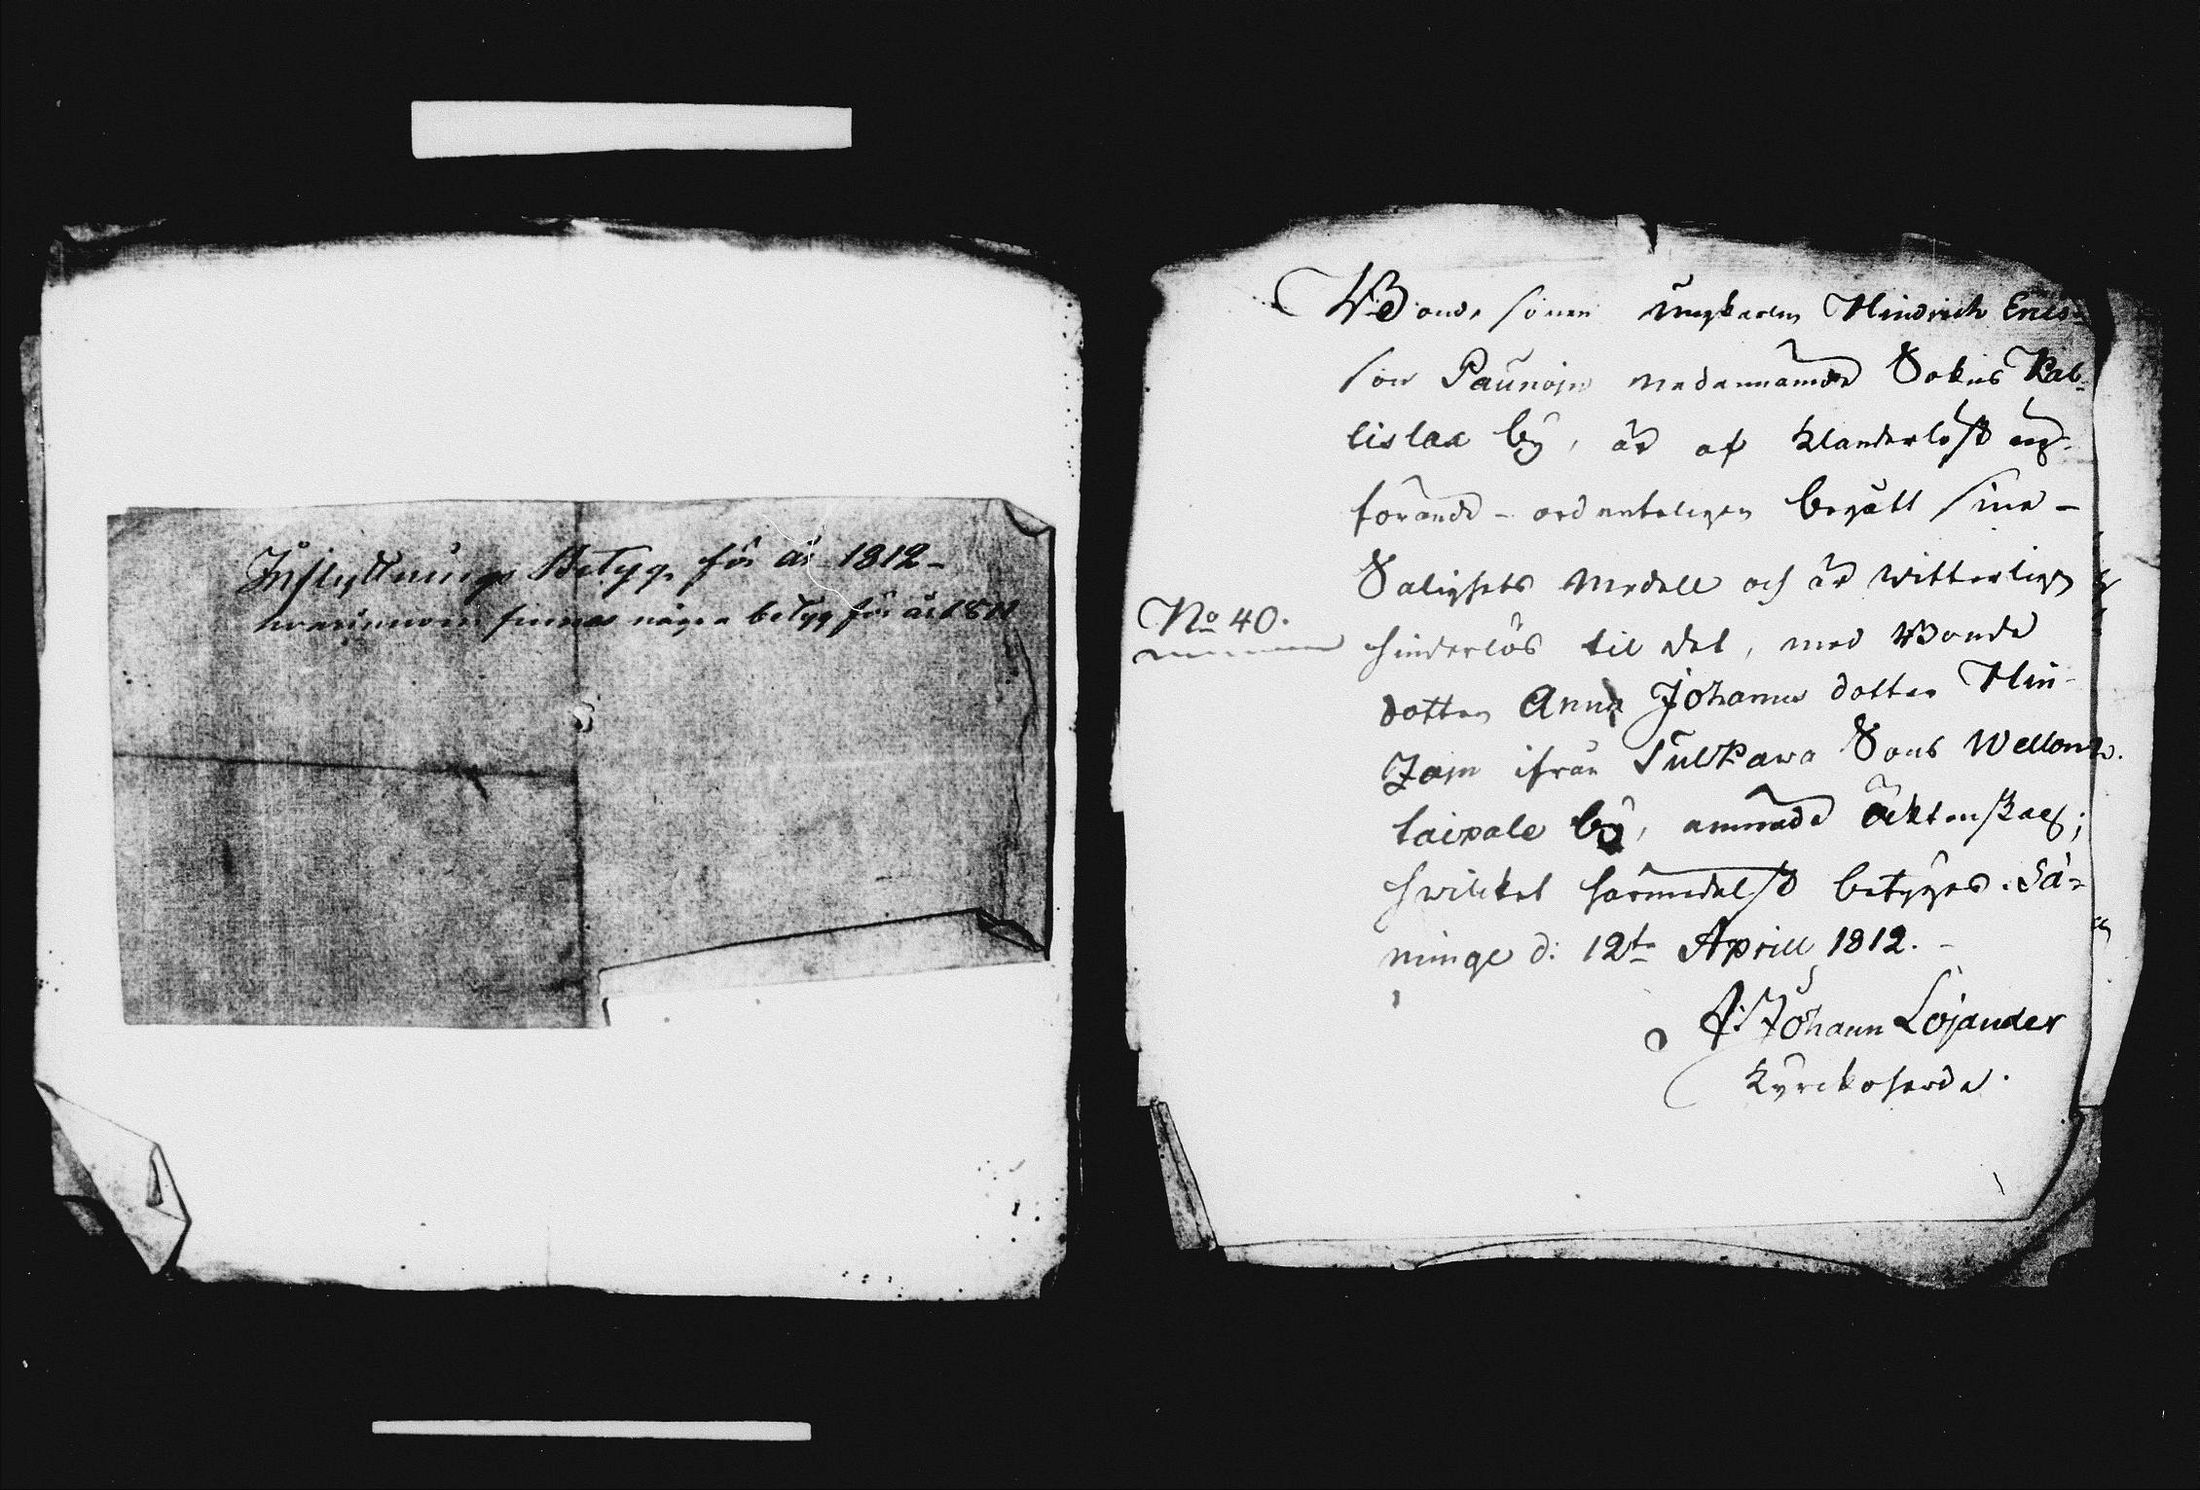 Inflyttnings Betyg för år 1812 –
hvarinnom finnes några betyg för år 1811
Bonde sonen Ungkarlen Hindrich Erics-
son Paunoin nedannämde Sokns Kal-
lislax by, är af klanderlöst upp-
förande – ordenteligen begått sina –
Salighets medell och är witterligen
No 40.
hinderlös til det, med Bonde
dotten Anna Johans dotter Hin-
ifrån Sulkawa Sons
taipale by, ämnade äktenskap;
hwilket härmedelst betyges. Sä-
minge d: 12te Aprill 1812. –
Johann Lojander
Kyrckoherde.